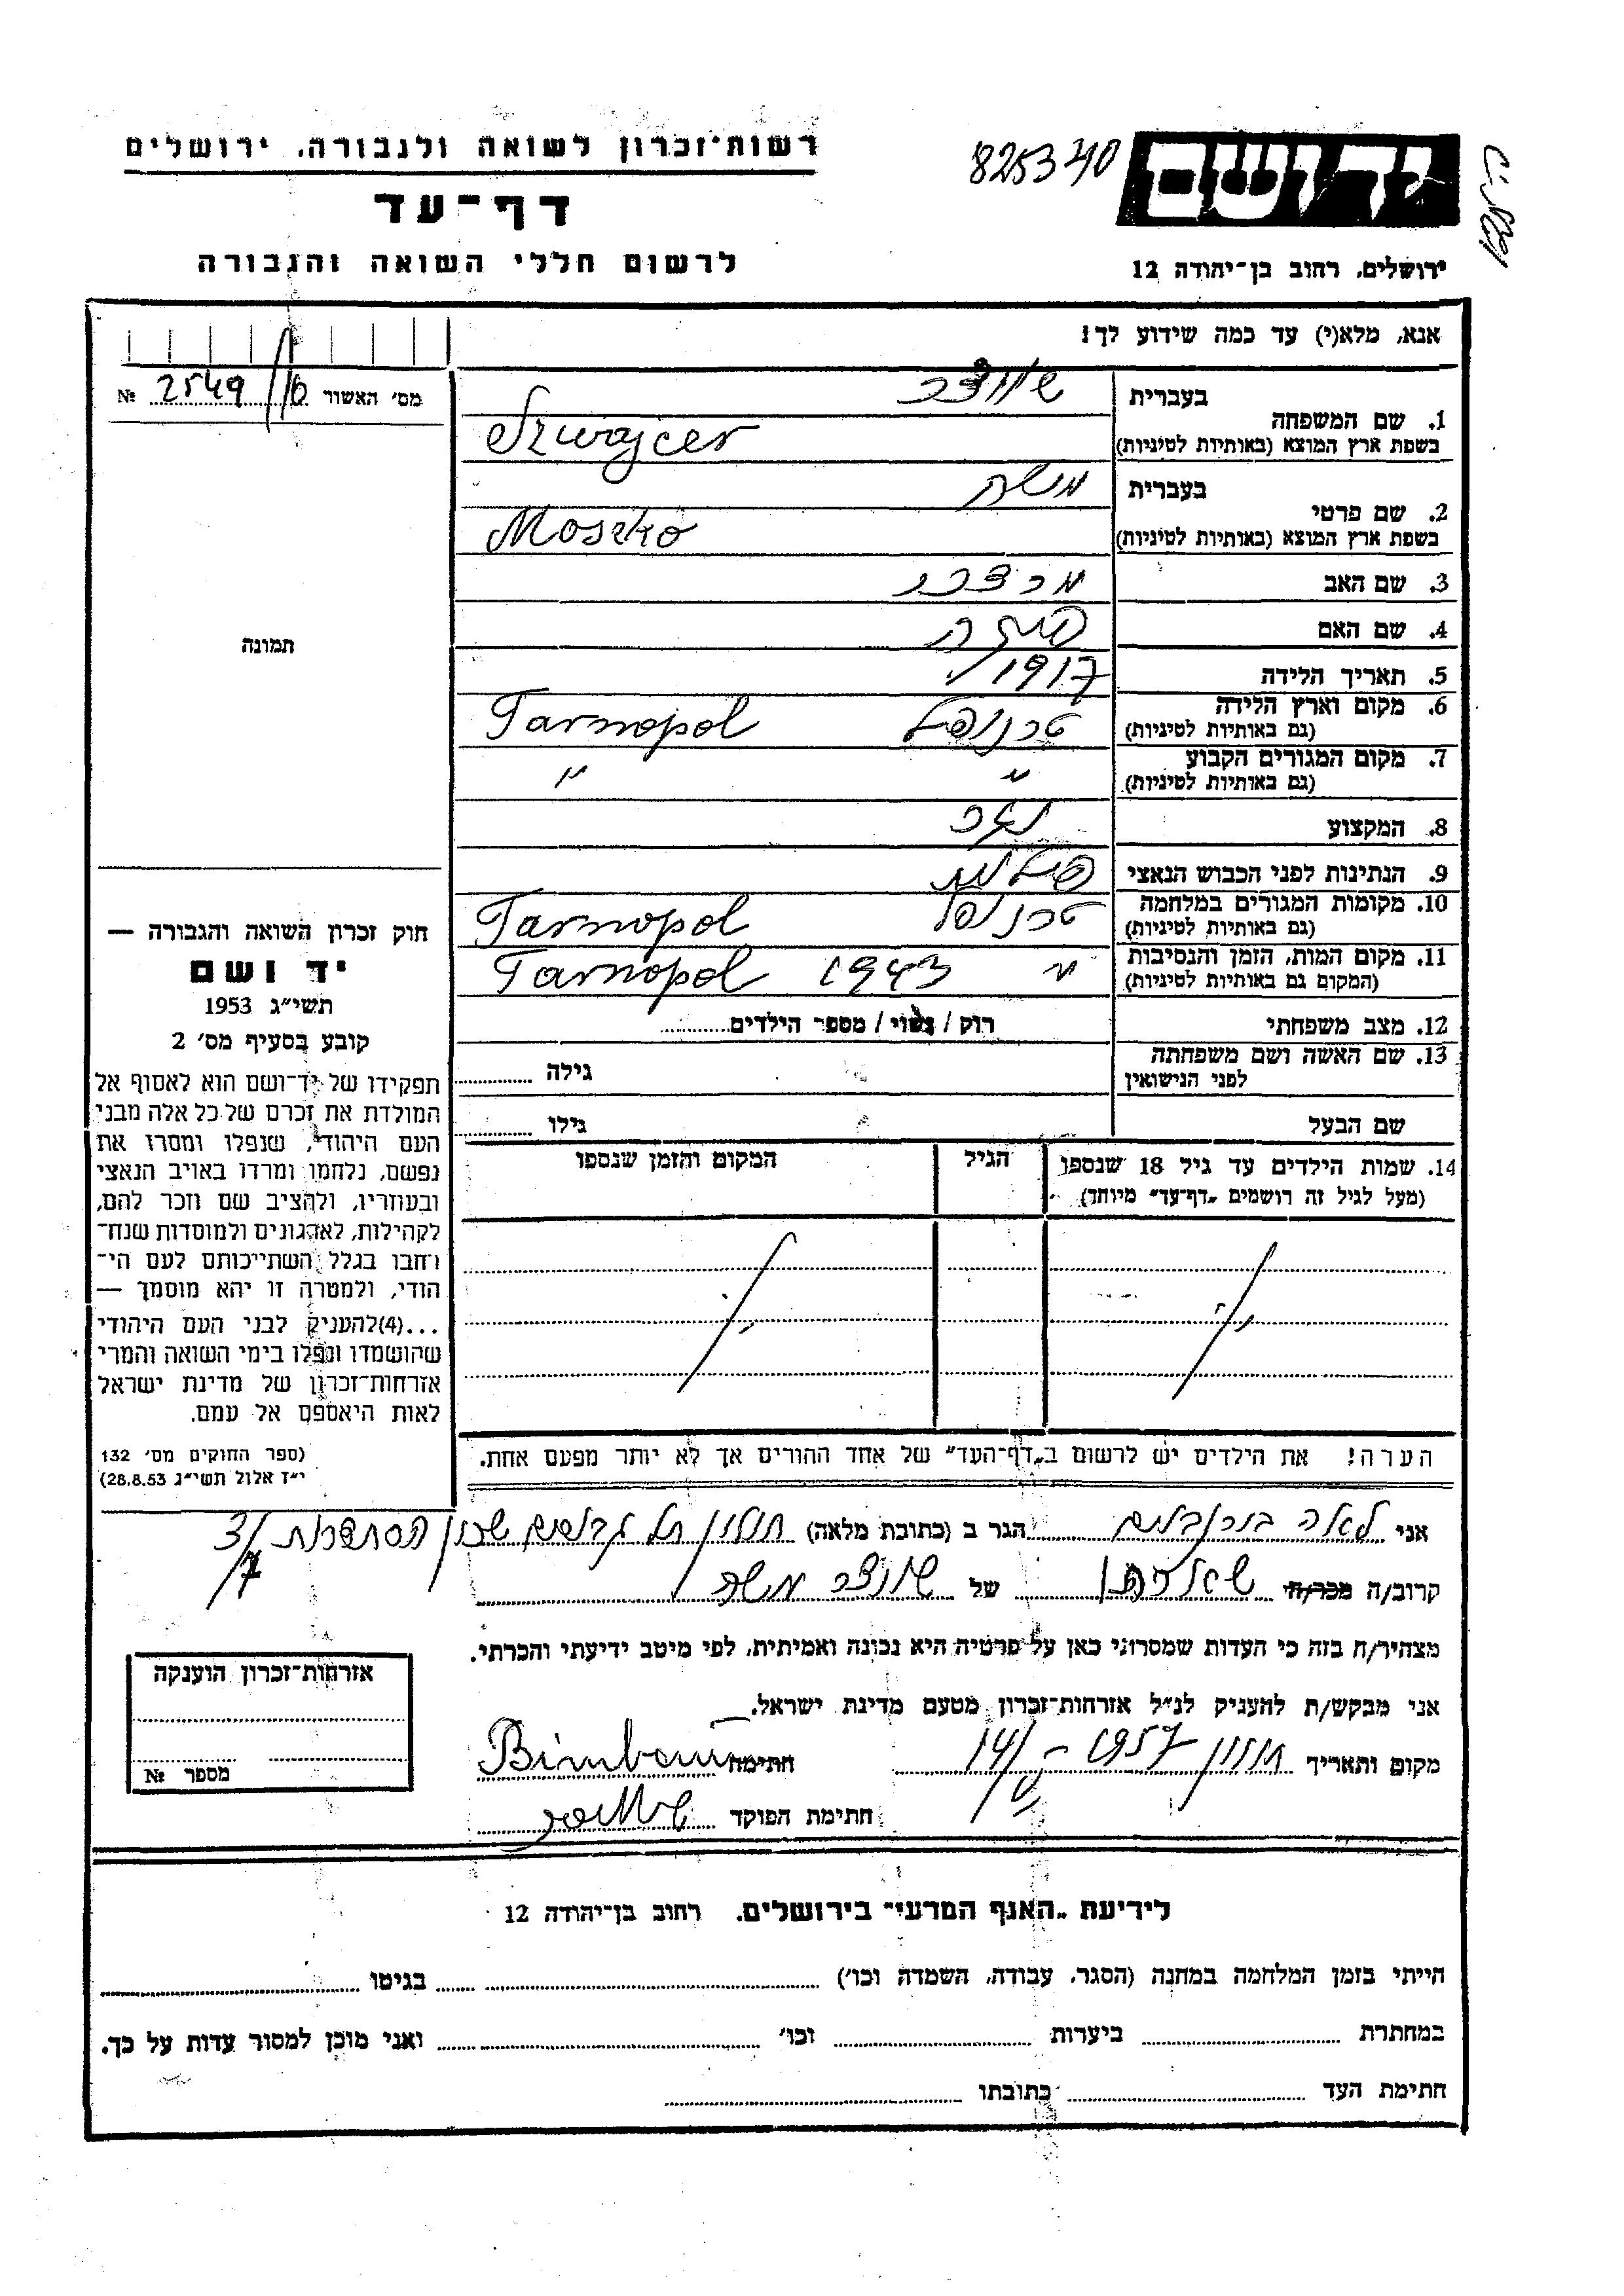 רשות־זכרון לשואה ולגבורה. ירושלים
דף־עד
לרשום חללי השואה והגבורה
825340
יד ושם
ירושלים, רחוב בן־יהודה 12
אנא, מלא(י) עד כמה שידוע לך!
מס׳ האשור 16/2549 №
תמונה
1. שם המשפחה
בעברית שוויצר
בשפת ארץ המוצא (באותיות לטיניות) Szwajcer
2. שם פרטי
בעברית משה
בשפת ארץ המוצא (באותיות לטיניות) Moszko
3. שם האב מרדכי
4. שם האם
5. תאריך הלידה 1917
6. מקום וארץ הלידה (גם באותיות לטיניות) טרנופל Tarnopol
7. מקום המגורים הקבוע (גם באותיות לטיניות) " "
8. המקצוע
9. הנתינות לפני הכבוש הנאצי פולנית
10. מקומות המגורים במלחמה (גם באותיות לטיניות) טרנופל Tarnopol
11. מקום המות, הזמן והנסיבות (המקום גם באותיות לטיניות) " 1943 Tarnopol
12. מצב משפחתי רוק / נשוי / מספר הילדים
13. שם האשה ושם משפחתה לפני הנישואין גילה
שם הבעל גילו
14. שמות הילדים עד גיל 18 שנספו (מעל לגיל זה רושמים „דף־עד״ מיוחד) הגיל המקום והזמן שנספו
חוק זכרון השואה והגבורה —
יד ושם
תשי״ג 1953
קובע בסעיף מס׳ 2
תפקידו של יד־ושם הוא לאסוף אל
המולדת את זכרם של כל אלה מבני
העם היהודי, שנפלו ומסרו את
נפשם, נלחמו ומרדו באויב הנאצי
ובעוזריו, ולהציב שם וזכר להם,
לקהילות, לארגונים ולמוסדות שנח־
רחבו בגלל השתייכותם לעם הי־
הודי, ולמטרה זו יהא מוסמך —
...(4)להעניק לבני העם היהודי
שהושמדו ונפלו בימי השואה והמרי
אזרחות־זכרון של מדינת ישראל
לאות היאספם אל עמם.
(ספר החוקים מס׳ 132
י״ז אלול תשי״ג 28.8.53)
הערה! את הילדים יש לרשום ב„דף־העד״ של אחד ההורים אך לא יותר מפעם אחת.
אני לאה בירנבוים הגר ב (כתובת מלאה) חולון תל גבורים שכון הסתדרות 3/
7
קרוב/ה מכר/ה של שוויצר משה
מצהיר/ה בזה כי העדות שמסרתי כאן על פרטיה היא נכונה ואמיתית, לפי מיטב ידיעתי והכרתי.
אני מבקש/ת להעניק לנ״ל אזרחות־זכרון מטעם מדינת ישראל.
מקום ותאריך חולון 14/V - 1957 חתימה Birnbaum
חתימת הפוקד
אזרחות־זכרון הוענקה
מספר №
לידיעת „האגף המדעי״ בירושלים. רחוב בן־יהודה 12
הייתי בזמן המלחמה במחנה (הסגר, עבודה, השמדה וכו׳) בגיטו
במחתרת ביערות וכו׳ ואני מוכן למסור עדות על כך.
חתימת העד כתובתו